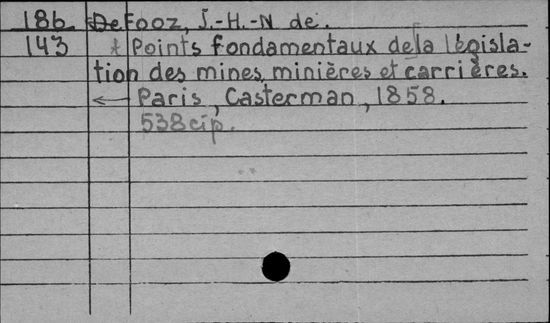 186. De Fooz, J.-H.-N de.
143 * Points fondamentaux de la législa-
tion des mines, minières et carrières.
← Paris, Casterman, 1858.
538 cip.